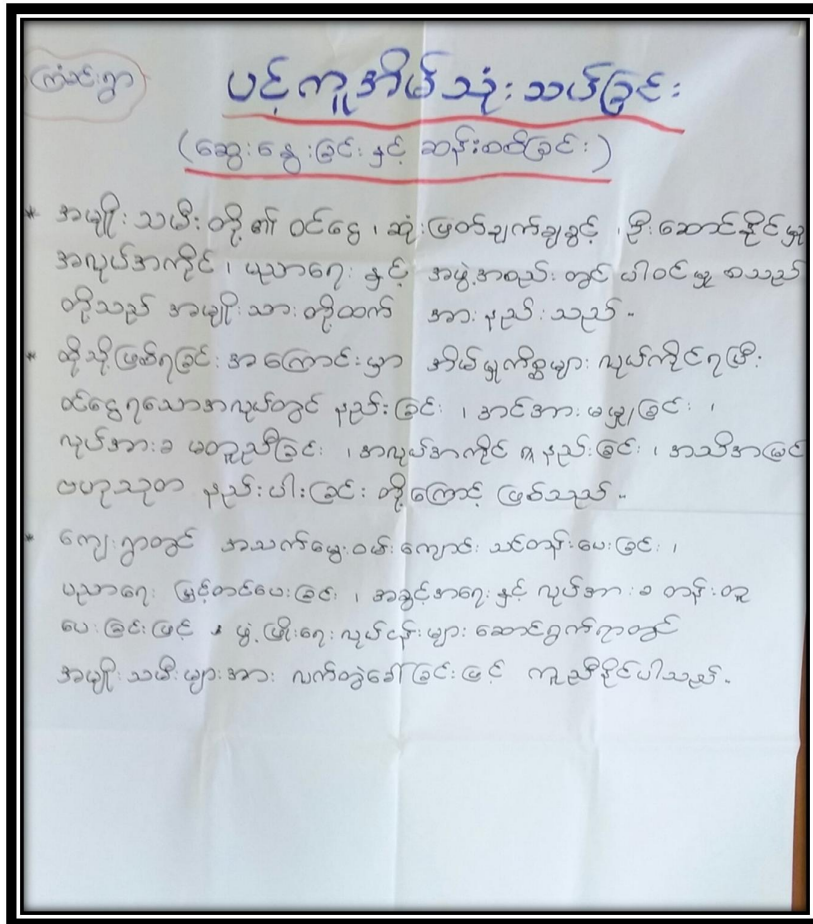 ကြံခင်းရွာ
ပင့်ကူအိမ်သုံးသပ်ခြင်း
(ဆွေးနွေးခြင်းနှင့် ဆန်းစစ်ခြင်း)
* အမျိုးသမီးတို့၏ ဝင်ငွေ၊ ဆုံးဖြတ်ချက်ချခွင့်၊ ဦးဆောင်နိုင်မှု
အလုပ်အကိုင်၊ ပညာရေး နှင့် အဖွဲ့အစည်းတွင် ပါဝင်မှု စသည်
တို့သည် အမျိုးသားတို့ထက် အားနည်းသည်။
* ထိုသို့ဖြစ်ရခြင်းအကြောင်းမှာ အိမ်မှုကိစ္စများ လုပ်ကိုင်ရပြီး
ဝင်ငွေရသောအလုပ်တွင် နည်းခြင်း၊ အင်အားမမျှခြင်း၊
လုပ်အားခ မတူညီခြင်း၊ အလုပ်အကိုင် ရှနည်းခြင်း၊ အသိအမြင်
ဗဟုသုတ နည်းပါးခြင်း တို့ကြောင့် ဖြစ်သည်။
* ကျေးရွာတွင် အသက်မွေးဝမ်းကျောင်း သင်တန်းပေးခြင်း၊
ပညာရေး မြှင့်တင်ပေးခြင်း၊ အခွင့်အရေးနှင့် လုပ်အားခ တန်းတူ
ပေးခြင်းဖြင့် ၊ ဖွံ့ဖြိုးရေးလုပ်ငန်းများ ဆောင်ရွက်ရာတွင်
အမျိုးသမီးများအား လက်တွဲခေါ်ခြင်းဖြင့် ကူညီနိုင်ပါသည်။